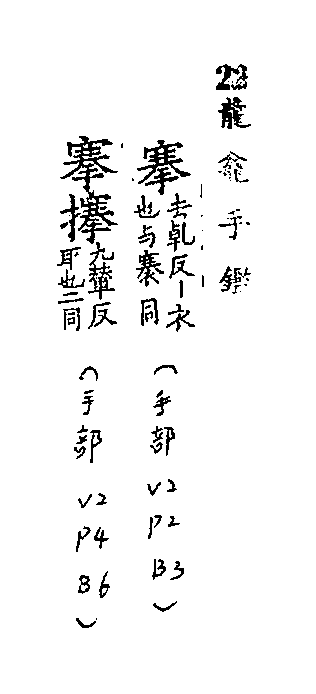 龍龕手鑑
搴去乹反丨衣
也与褰同
(手部 V2 P2 B3)
搴
九輦反
耴也二同
(手部 V2 P4 B6)